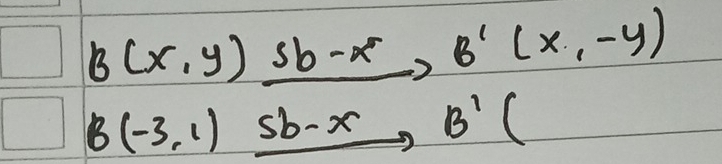 B (x, y) sb-x → B' (x, -y)
B (-3, 1) sb-x → B' (